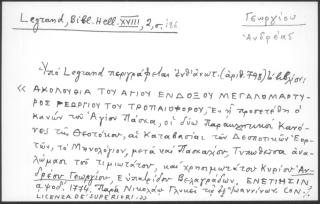 Legrand, Bibl. Hell. XVIII, 2, σ. 186
Γεωργίου
Ἀνδρέας
Ὑπὸ Legrand περιγράφεται (ἀριθ. 798) βιβλίον:
« ΑΚΟΛΟΥΘΙΑ ΤΟΥ ΑΓΙΟΥ ΕΝΔΟΞΟΥ ΜΕΓΑΛΟΜΑΡΤΥ-
ΡΟΣ ΓΕΩΡΓΙΟΥ ΤΟΥ ΤΡΟΠΑΙΟΦΟΡΟΥ, Ἐν ᾗ προσετέθη ὁ
κανὼν τοῦ Ἁγίου Πάσχα, οἱ δύω Παρακλητικοὶ Κανό-
νες τῆς Θεοτόκου, αἱ Καταβασίαι τῶν Δεσποτικῶν Ἑορ-
τῶν, τὸ Μηνολόγιον, μετὰ καὶ Πασχαλίου. Τυπωθεῖσα ἀνα-
λώμασι τοῦ τιμιωτάτου, καὶ χρησιμωτάτου Κυρίου Ἀν-
δρέου Γεωργίου, Βελαγράδων, ΕΝΕΤΙΗΣΙΝ
αψοδ'. 1774. Παρὰ Νικολάῳ Γλυκεῖ τῷ ἐξ Ἰωαννίνων. CON
LICENZA DE' SUPERIORI. »